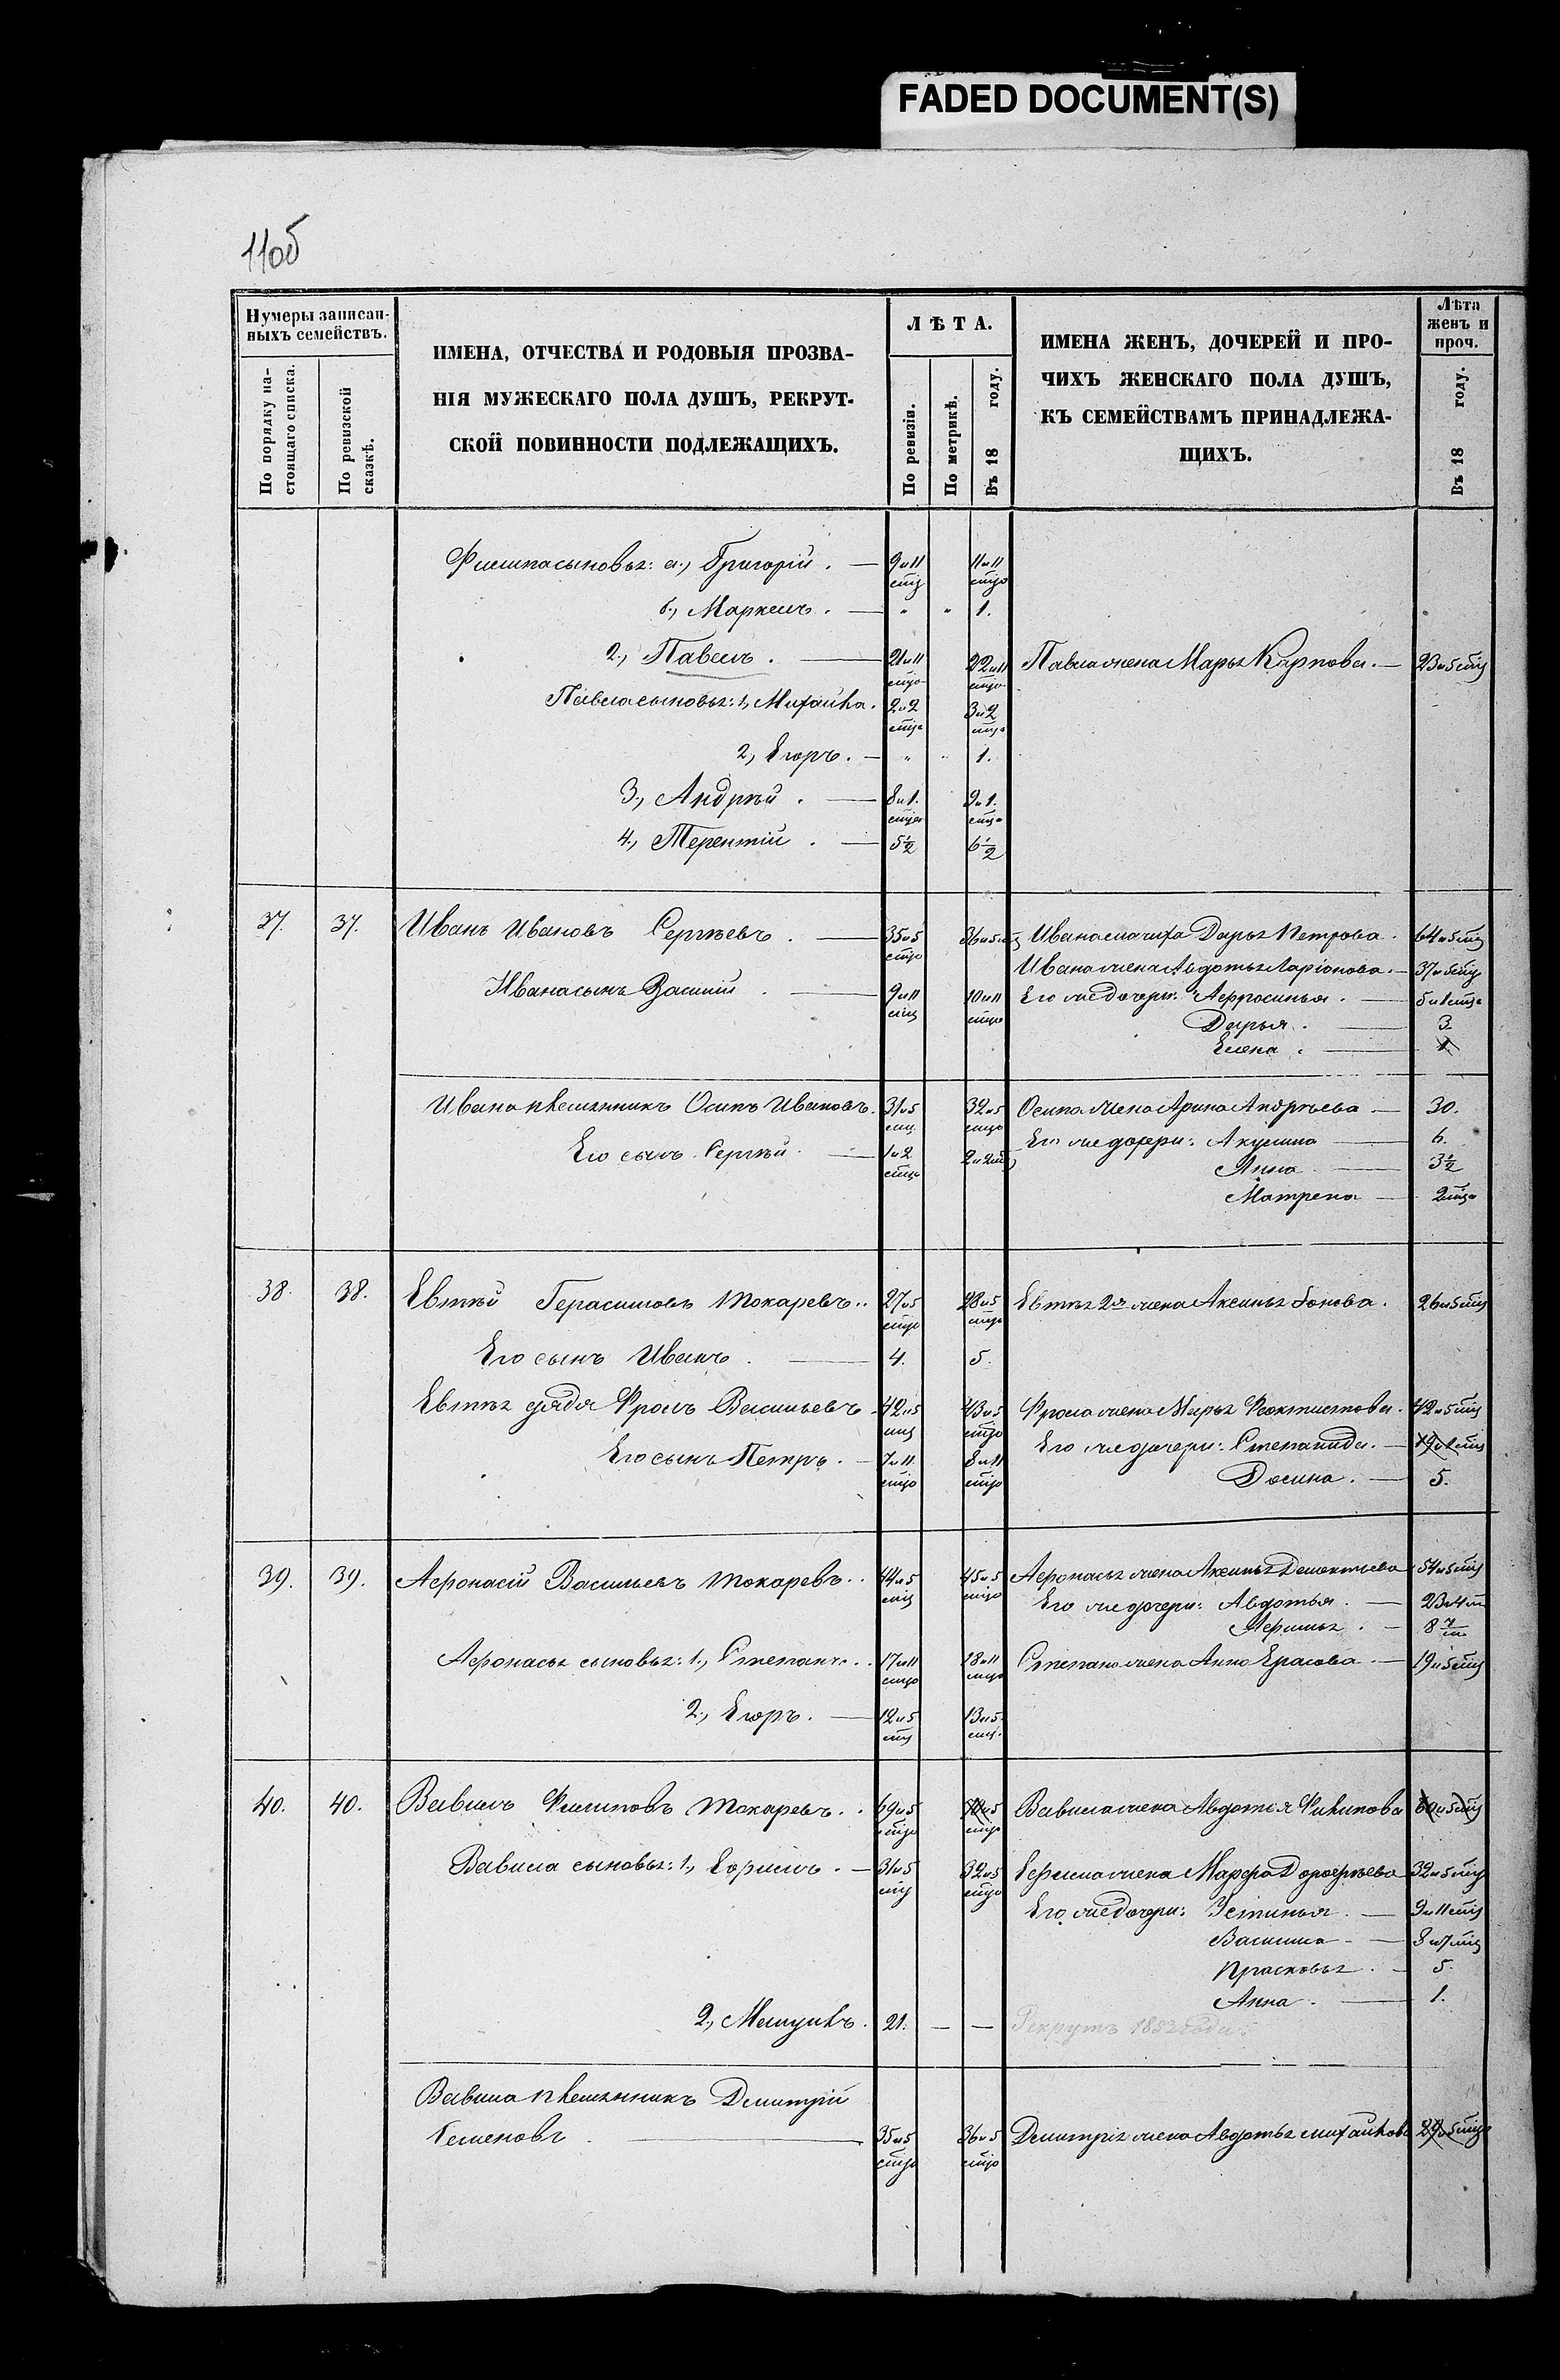 FADED DOCUMENT(S)
11об
Нумеры записан-
ныхъ семействъ.
По порядку на-
стоящаго списка.
По ревизской
сказкѣ.
ИМЕНА, ОТЧЕСТВА И РОДОВЫЯ ПРОЗВА-
НІЯ МУЖЕСКАГО ПОЛА ДУШЪ, РЕКРУТ-
СКОЙ ПОВИННОСТИ ПОДЛЕЖАЩИХЪ.
ЛѢТА.
По ревизіи.
По метрикѣ.
Въ 18 году.
ИМЕНА ЖЕНЪ, ДОЧЕРЕЙ И ПРО-
ЧИХЪ ЖЕНСКАГО ПОЛА ДУШЪ,
КЪ СЕМЕЙСТВАМЪ ПРИНАДЛЕЖА-
ЩИХЪ.
Лѣта
женъ и
проч.
Въ 18 году.
Филипа сыновья: а., Григорій. — 9 и 11 мцо 11 и 11 мцо
б., Маркелъ. — " " 1.
2., Павелъ. — 21 и 11 мцо 22 и 11 мцо Павла жена Марья Карпова. — 23 и 5 мцо
Павла сыновья: 1, Михайла. 2 и 2 мцо 3 и 2 мцо
2, Егоръ. — " " 1.
3., Андрѣй. — 8 и 1. мцо 9 и 1. мцо
4., Терентій. — 5 1/2 6 1/2
37. 37. Иванъ Ивановъ Сергѣевъ. — 35 и 5 мцо 36 и 5 мцо Ивана мачиха Дарья Петрова. 64 и 5 мцо
Ивана жена Авдотья Ларіонова. — 37 и 5 мцо
Ивана сынъ Василій. — 9 и 11 мцо 10 и 11 мцо Его же дочери: Афросинья. — 5 и 1 мцо
Дарья. — 3
Елена. — 1
Ивана племянникъ Осипъ Ивановъ. 31 и 5 мцо 32 и 5 мцо Осипа жена Арина Андрѣева — 30.
Его сынъ Сергѣй. — 1 и 2 мцо 2 и 2 мцо Его же дочери: Акулина — 6.
Анна. — 3 1/2
Матрена — 2 мцо
38. 38. Евтѣй Герасимовъ Токаревъ.. 27 и 5 мцо 28 и 5 мцо Евтѣя 2я жена Аксинья 26 и 5 мцо
Его сынъ Иванъ. — 4. 5.
Евтѣя дядя Фролъ Васильевъ 42 и 5 мцо 43 и 5 мцо Фрола жена Марья Феоктистова. 42 и 5 мцо
Его сынъ Петръ. — 7 и 11 мцо 8 и 11 мцо Его же дочери: Степанида. —
Домна. — 5.
39. 39. Афонасій Васильевъ Токаревъ.. 44 и 5 мцо 45 и 5 мцо Афонасья жена Аксинья Дементьева 54 и 5 мцо
Его же дочери: Авдотья. — 23 и 4 м
Афимья. — 8 7/м
Афонасья сыновья: 1., Степанъ.. 17 и 11 мцо 18 и 11 мцо Степана жена Анна — 19 и 5 мцо
2., Егоръ. — 12 и 5 мцо 13 и 5 мцо
40. 40. Вавилъ Филиповъ Токаревъ.. 69 и 5 мцо 70 и 5 мцо Вавила жена Авдотья Филипова 60 и 5 мцо
Вавила сыновья: 1, Ефимъ. — 31 и 5 мцо 32 и 5 мцо Ефима жена Марфа Дорофѣева 32 и 5 мцо
Его же дочери: Устинья. — 9 и 11 мцо
Василиса. — 8 и 7 мцо
Прасковья. — 5.
Анна. — 1.
2., 21. — — Рекрутъ 1852 года.
Вавила племянникъ Дмитрій
Семеновъ. — 35 и 5 мцо 36 и 5 мцо Дмитрія жена Авдотья Михайлова 29 и 5 мцо